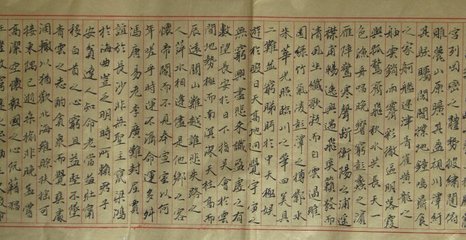 宮列岡巒之體勢披繡闥俯
雕甍山原曠其盈視川澤紆
其駭矚閭閻撲地鐘鳴鼎食
之家舸艦迷津青雀黃龍之
舳雲銷雨霽彩徹區明落霞
與孤鶩齊飛秋水共長天一
色漁舟唱晚響窮彭蠡之濱
雁陣驚寒聲斷衡陽之浦遙
襟甫暢逸興遄飛爽籟發而
清風生纖歌凝而白雲遏睢
園綠竹氣凌彭澤之樽鄴水
朱華光照臨川之筆四美具
二難並窮睇眄於中天極娛
遊於暇日天高地迥覺宇宙之
無窮興盡悲來識盈虛之有
數望長安於日下目吳會於雲
間地勢極而南溟深天柱高而北
辰遠關山難越誰悲失路之
人萍水相逢盡是他鄉之客
懷帝閽而不見奉宣室以何
年嗟乎時運不齊命途多舛
馮唐易老李廣難封屈賈
誼於長沙非無聖主竄梁鴻
於海曲豈乏明時所賴君子
安貧達人知命老當益壯寧
移白首之心窮且益堅不墜
青雲之志酌貪泉而覺爽處
涸轍以猶歡北海雖賒扶搖可
接東隅已逝桑榆非晚孟嘗
高潔空懷報國之心阮籍猖